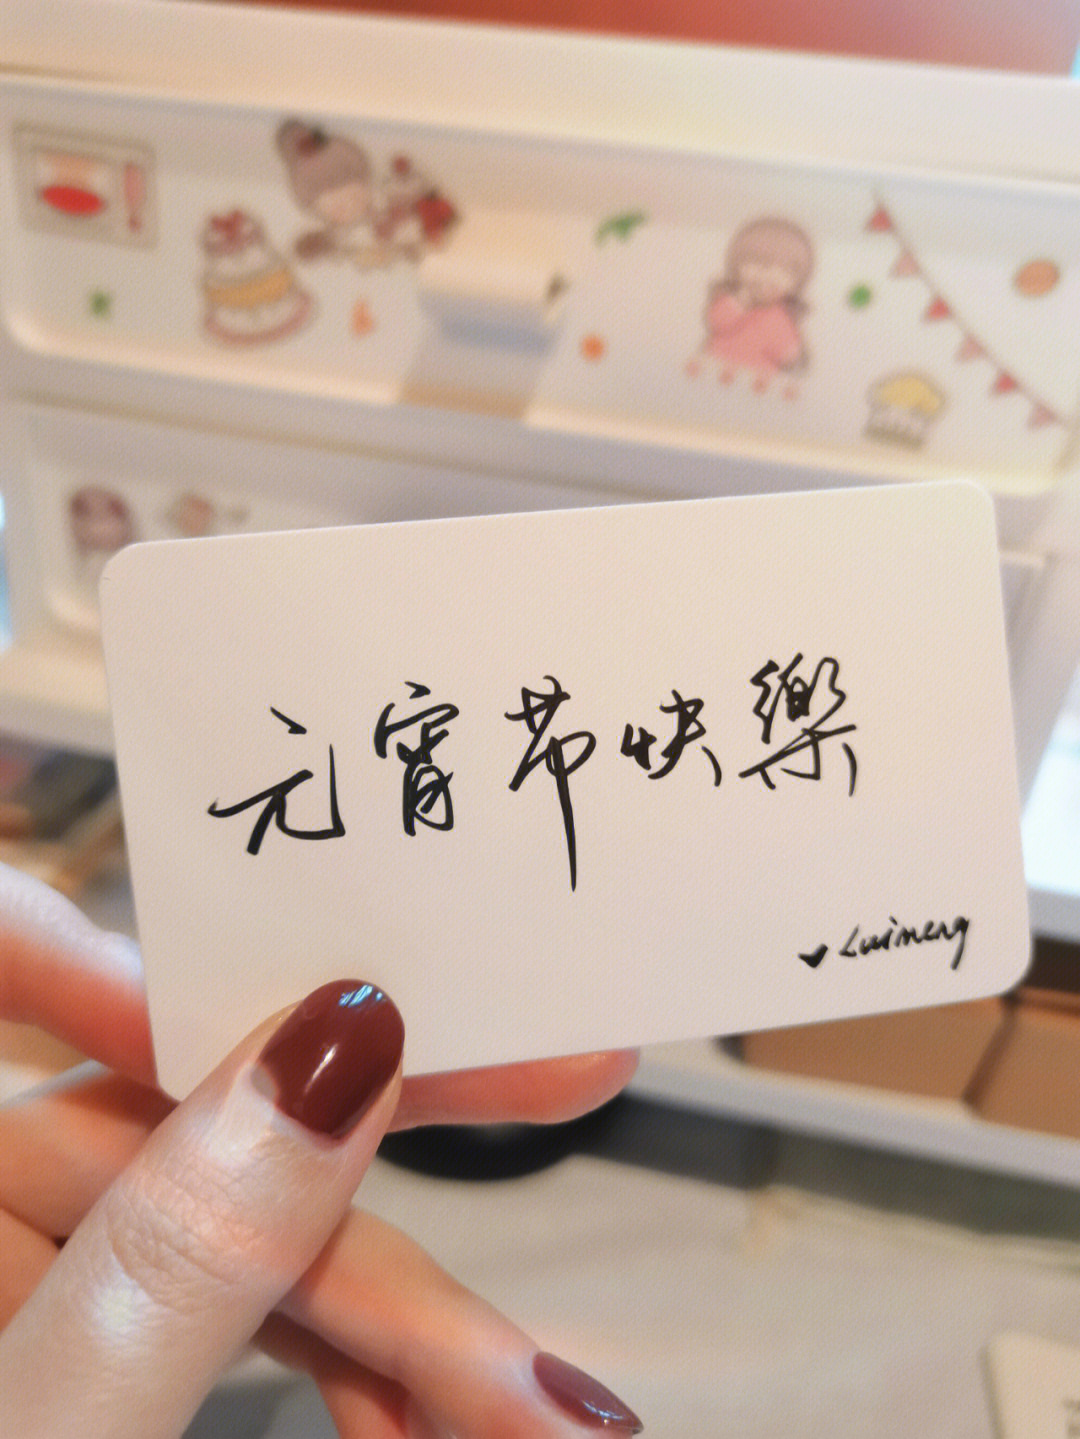 元宵节快樂
Luimeng